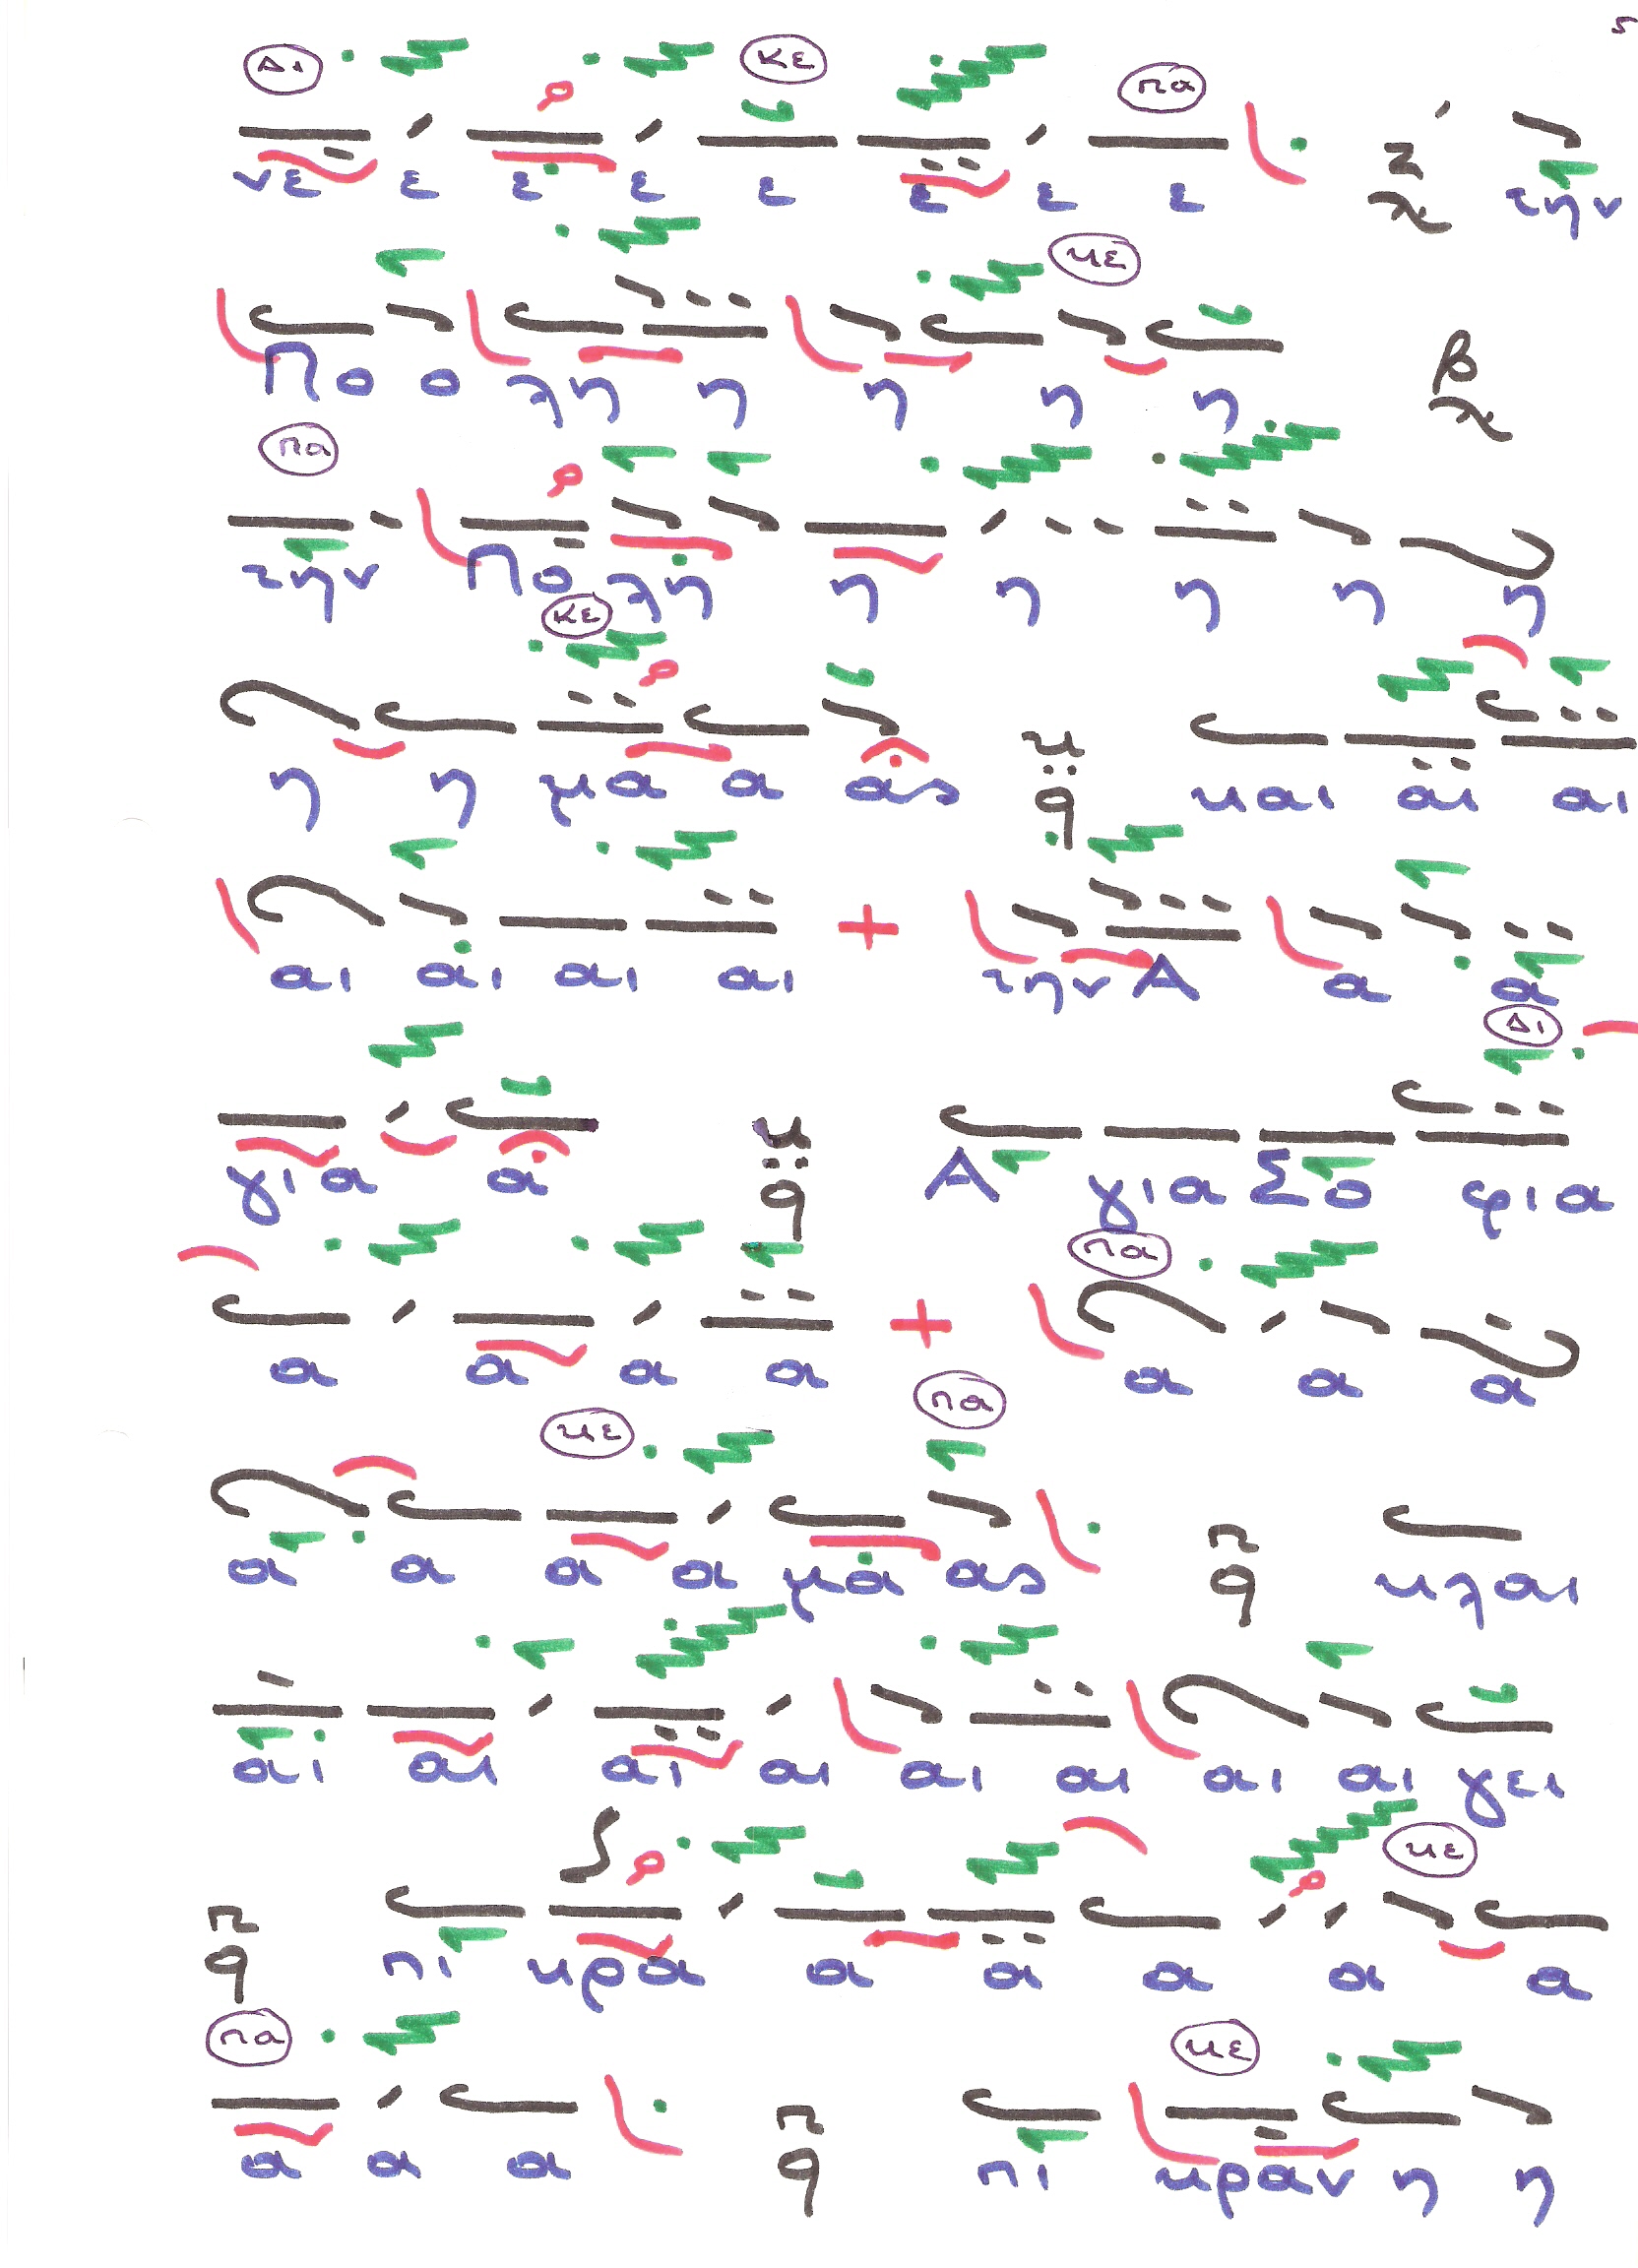 5
Δι Κε πα
νε ε ε ε ε ε ε ε την
κε
Πο ο λη η η η η
πα
την Πο λη η η η η η
Κε
η η μα α ας και αι αι
αι αι αι αι την Α α α
Δι
γι α α Α γι α Σο φι α
πα
α α α α α α α
κε πα
α α α α μα ας κλαι
αι αι αι αι αι αι αι αι γει
κε
πι κρα α α α α α
πα κε
α α α πι κραν η η